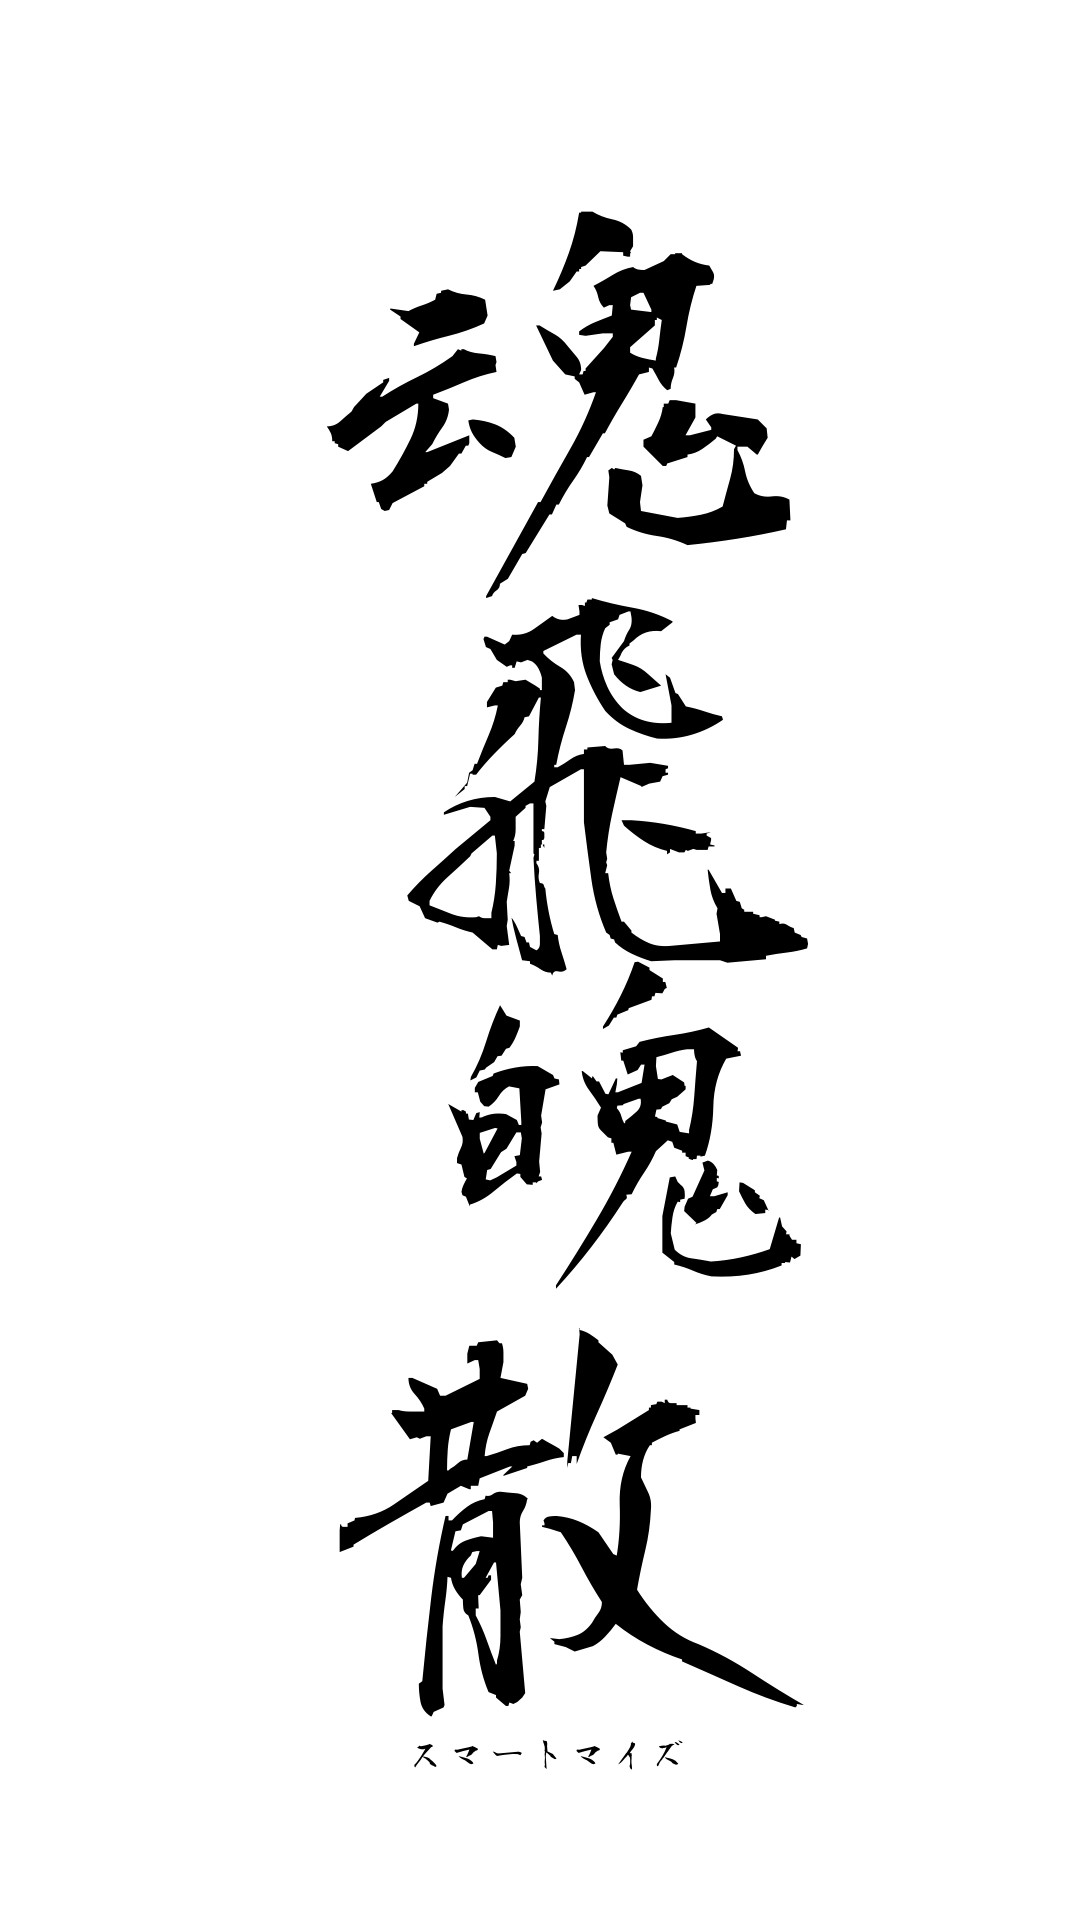 魂飛魄散
スマートマイズ